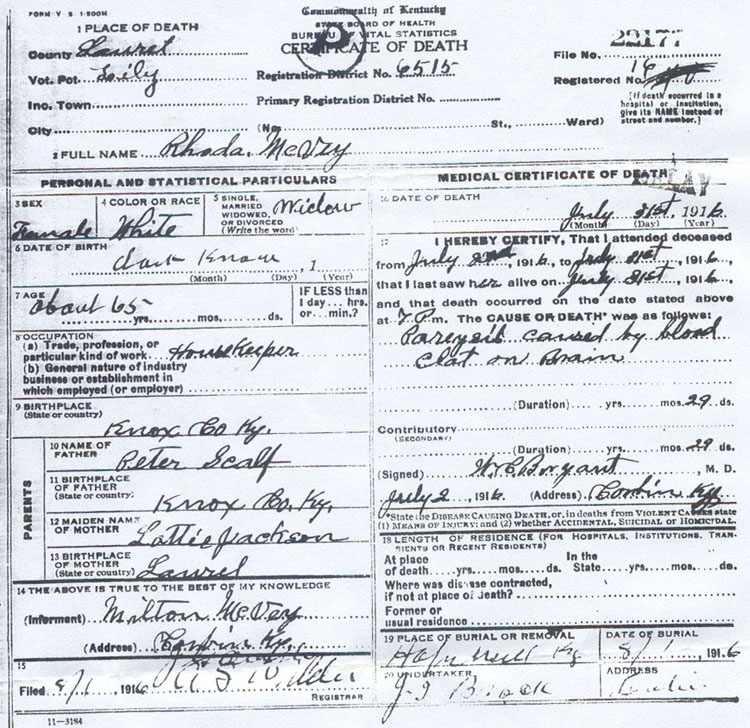 FORM V S 1-200M
Commonwealth of Kentucky
STATE BOARD OF HEALTH
BUREAU OF VITAL STATISTICS
CERTIFICATE OF DEATH
1 PLACE OF DEATH
County Laurel
Vot. Pct. Lily
Inc. Town
City
Registration District No. 6515
Primary Registration District No.
(No. St., Ward)
File No. 22177
Registered No. 16
[If death occurred in a
hospital or institution,
give its NAME instead of
street and number.]
2 FULL NAME Rhoda McVey
PERSONAL AND STATISTICAL PARTICULARS
3 SEX Female
4 COLOR OR RACE White
5 SINGLE, MARRIED WIDOWED, OR DIVORCED (Write the word) Widow
6 DATE OF BIRTH
dont Know, 1
(Month) (Day) (Year)
7 AGE
about 65
yrs. mos. ds.
IF LESS than
1 day... hrs.
or... min.?
8 OCCUPATION
(a) Trade, profession, or
particular kind of work HouseKeeper
(b) General nature of industry
business or establishment in
which employed (or employer)
9 BIRTHPLACE
(State or country)
Knox Co Ky.
PARENTS
10 NAME OF FATHER
Peter Scalf
11 BIRTHPLACE OF FATHER
(State or country)
Knox Co. Ky.
12 MAIDEN NAME OF MOTHER
Lottie Jackson
13 BIRTHPLACE OF MOTHER
(State or country) Laurel
14 THE ABOVE IS TRUE TO THE BEST OF MY KNOWLEDGE
(Informent) Milton McVey
(Address) Corbin Ky.
15
Filed 8/1 1916
REGISTRAR
11-3184
MEDICAL CERTIFICATE OF DEATH
16 DATE OF DEATH
July 31st, 1916
(Month) (Day) (Year)
17 I HEREBY CERTIFY, That I attended deceased
from July 2nd, 1916, to July 31st, 1916,
that I last saw her alive on July 31st, 1916
and that death occurred on the date stated above
at 7 P.m. The CAUSE OF DEATH* was as follows:
Pareysis caused by blood
Clat on Brain
(Duration) yrs. mos. 29 ds.
Contributory
(SECONDARY)
(Duration) yrs. mos. 29 ds.
(Signed) Bryant, M. D.
July 2, 1916 (Address) Corbin Ky
*State the DISEASE CAUSING DEATH, or, in deaths from VIOLENT CAUSES state
(1) MEANS OF INJURY; and (2) whether ACCIDENTAL, SUICIDAL or HOMICIDAL
18 LENGTH OF RESIDENCE (FOR HOSPITALS, INSTITUTIONS, TRAN-
SIENTS OR RECENT RESIDENTS)
At place of death yrs. mos. ds. In the State yrs. mos. ds.
Where was disease contracted,
if not at place of death?
Former or
usual residence
19 PLACE OF BURIAL OR REMOVAL
DATE OF BURIAL
8/1, 1916
20 UNDERTAKER
ADDRESS